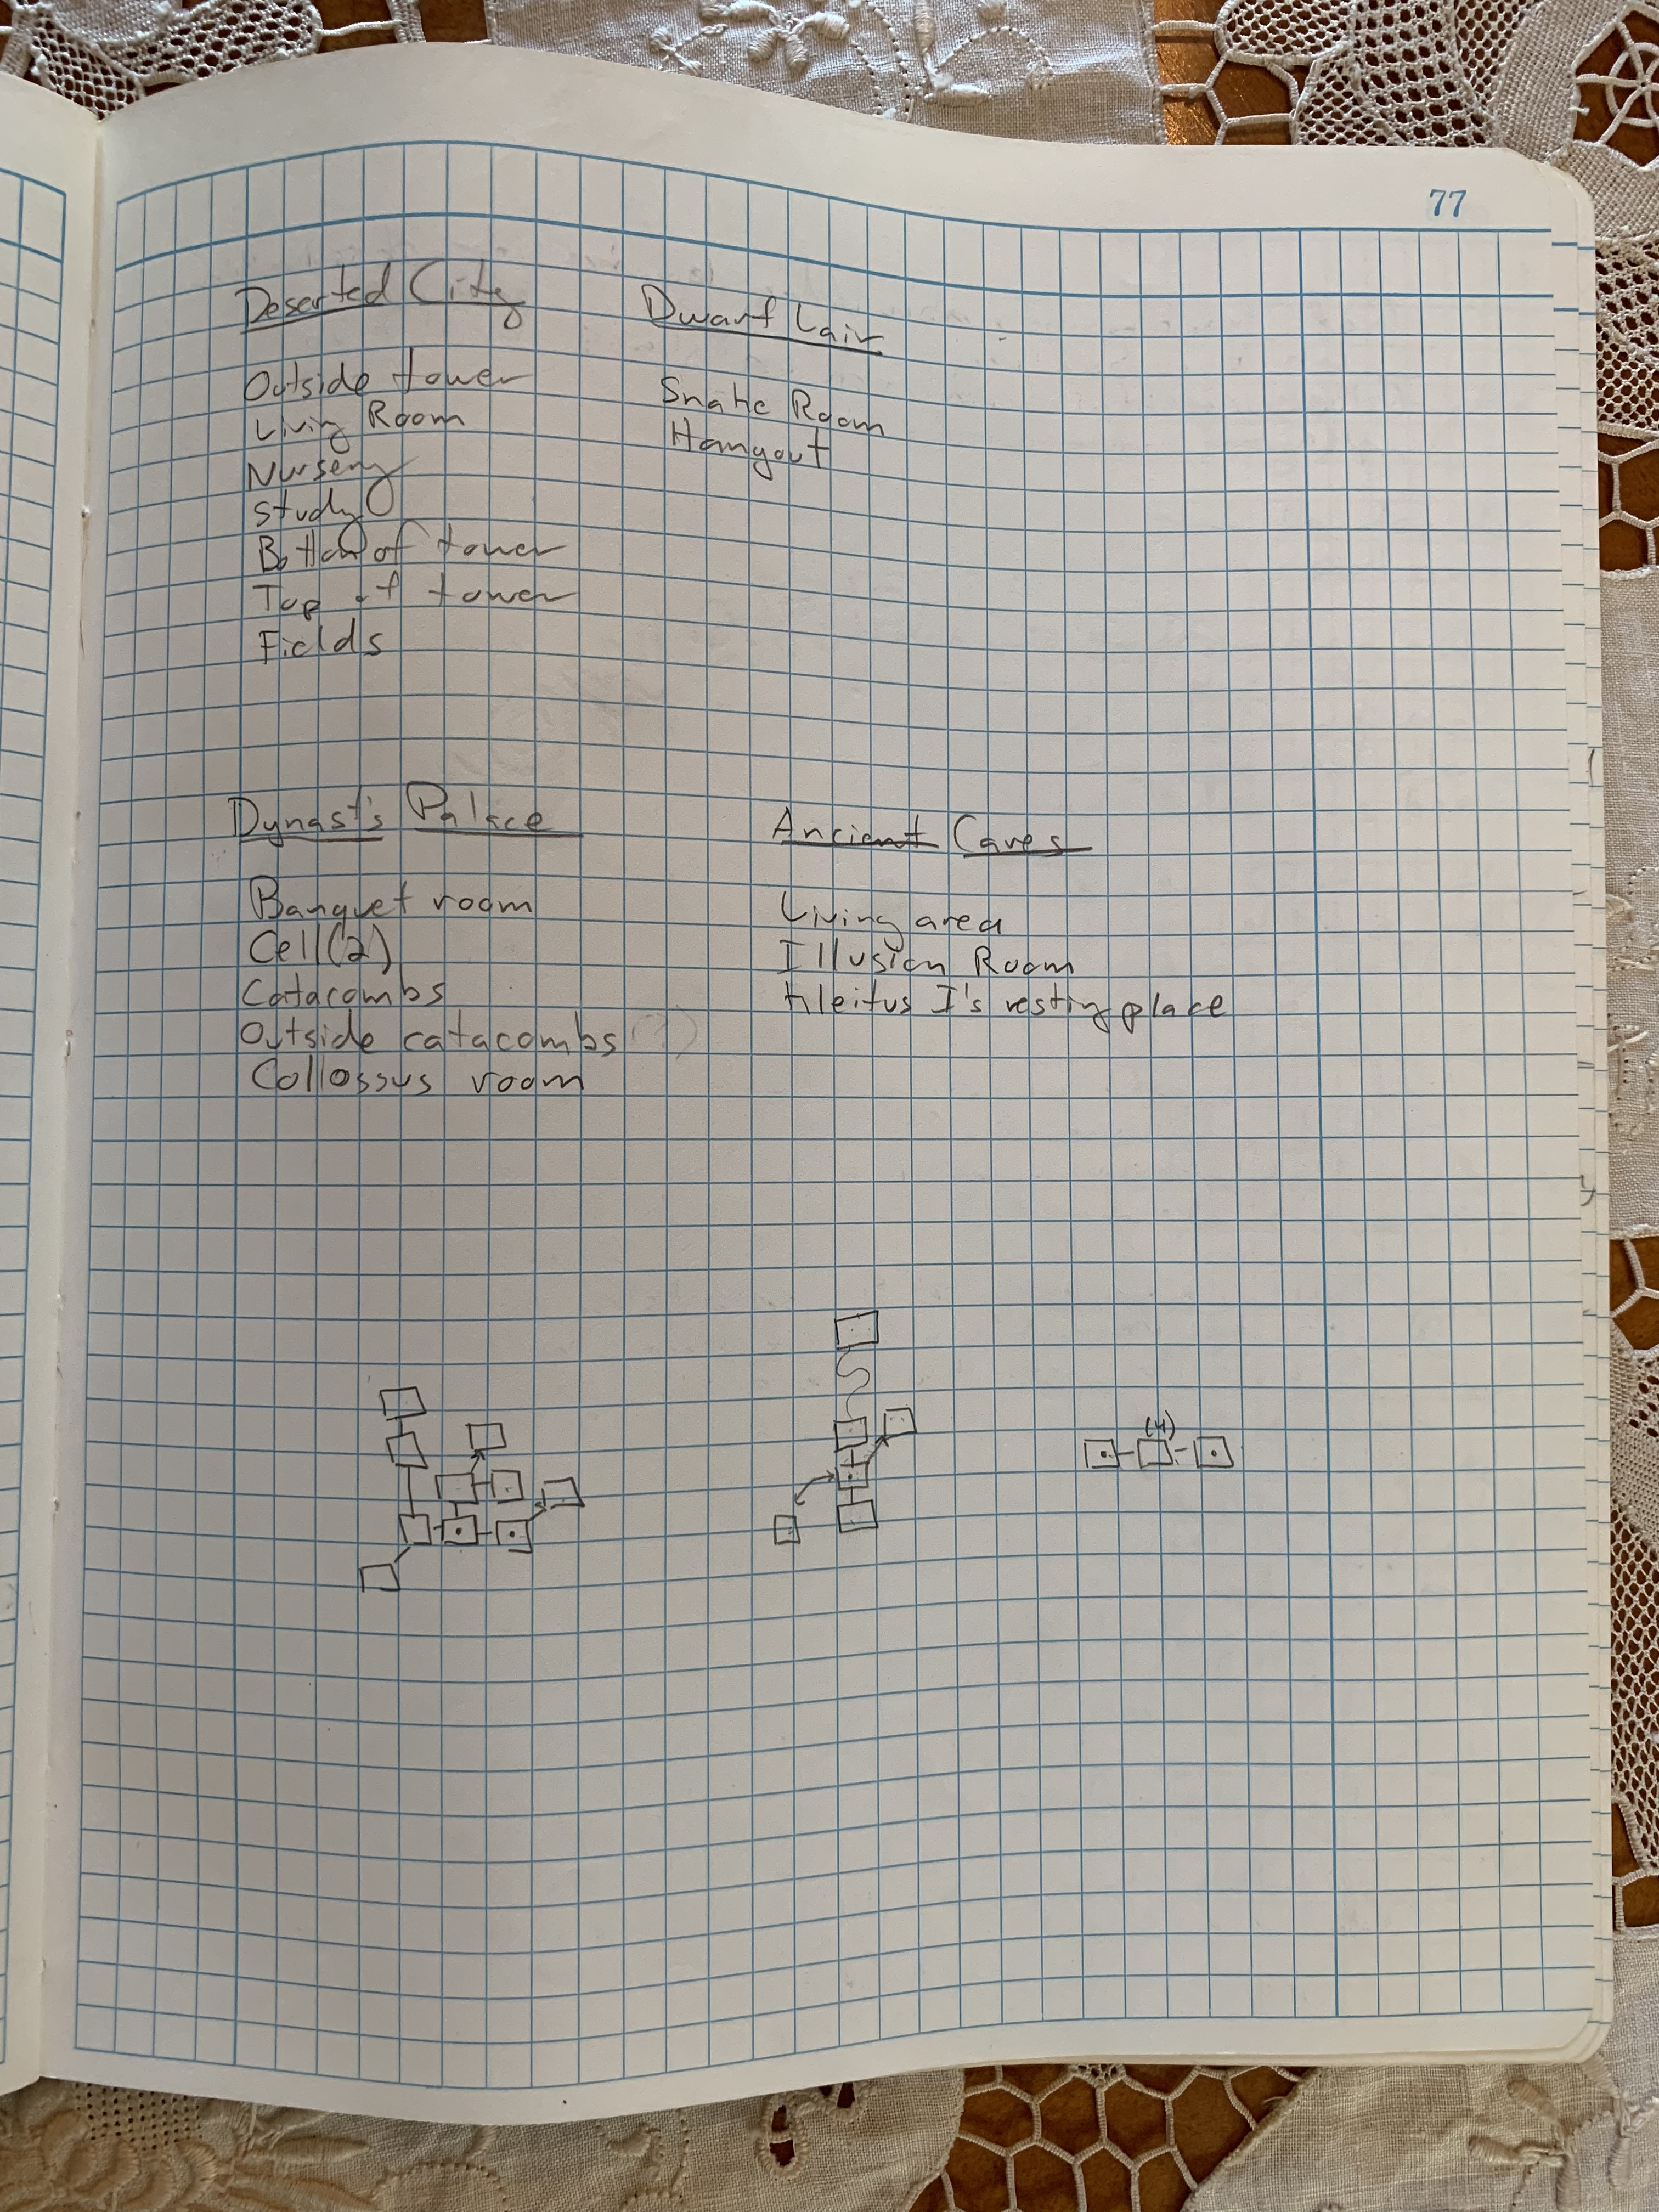 77
Deserted City
Outside tower
Living Room
Nursery
Study
Bottom of tower
Top of tower
Fields
Dwarf Lair
Snake Room
Hangout
Dynast's Palace
Banquet room
Cell (2)
Catacombs
Outside catacombs (?)
Collossus room
Ancient Caves
Living area
Illusion Room
Kleitus I's resting place
(4)